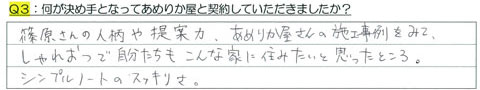 Q3：何が決め手となってあめりか屋と契約していただきましたか？
篠原さんの人柄や提案力、あめりか屋さんの施工事例をみて、
しゃれおつで自分たちもこんな家に住みたいと思ったところ。
シンプルノートのスッキリさ。